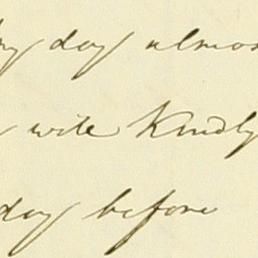 day almos
wite Kindly
day before